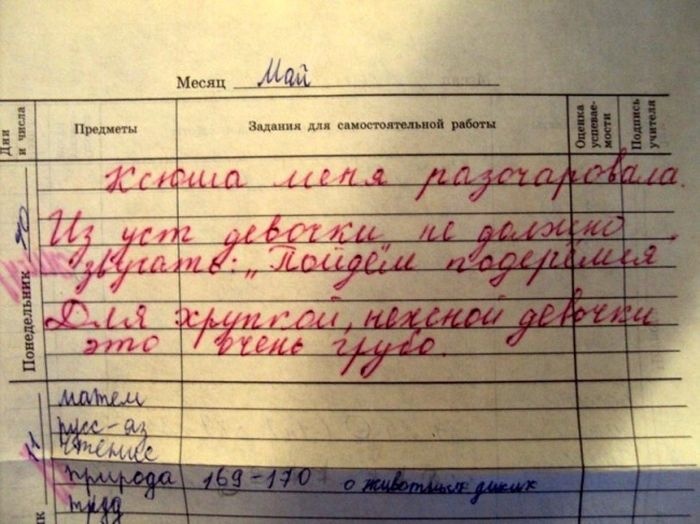 Месяц Май
Дни и числа
Предметы
Задания для самостоятельной работы
Оценка успевае-мости
Подпись учителя
Понедельник 10
Ксюша меня разочаровала.
Из уст девочки не должно
звучать: „Пойдём подерёмся
Для хрупкой, нежной девочки
это очень грубо.
11
матем
русс-яз
чтение
природа 169-170 о животных диких
труд
ик